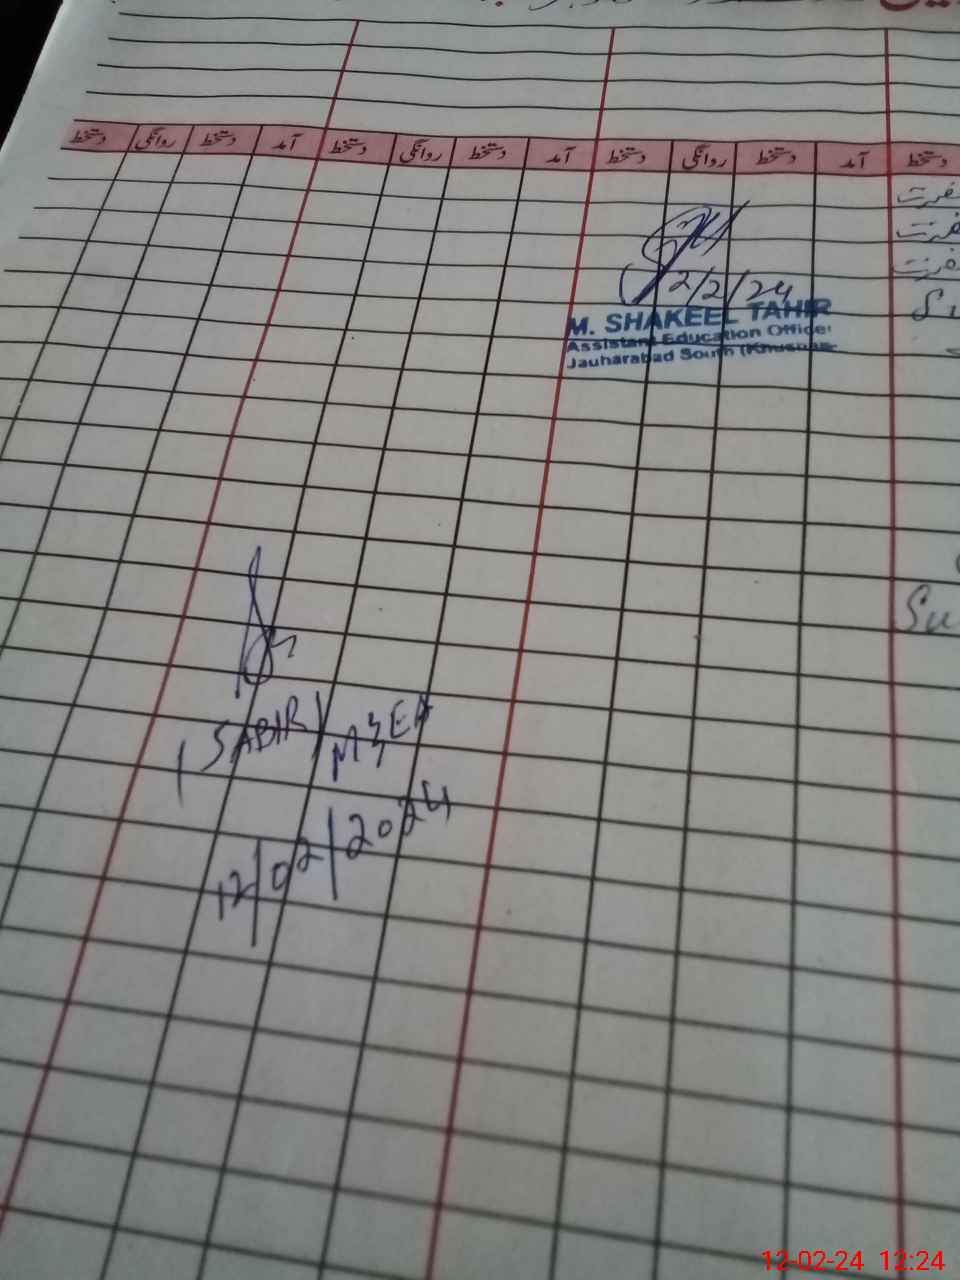 دستخط روانگی دستخط آمد دستخط روانگی دستخط آمد دستخط روانگی دستخط آمد دستخط
2/2/24
M. SHAKEEL TAHIR
Assistant Education Officer
Jauharabad South
Su
(SABIR) M&EA
12/02/2024
12-02-24 12:24